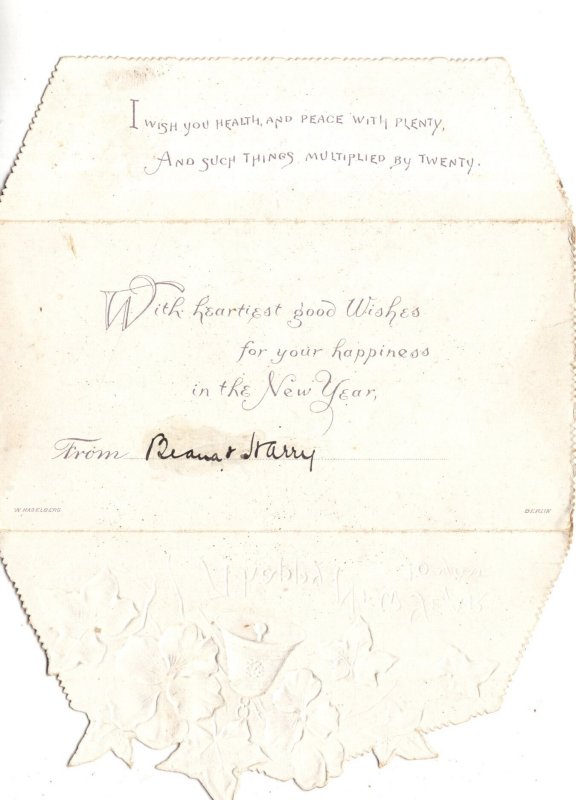 I WISH YOU HEALTH, AND PEACE WITH PLENTY,
AND SUCH THINGS MULTIPLIED BY TWENTY.
With heartiest good Wishes
for your happiness
in the New Year,
From Beana & Harry
W. HAGELBERG BERLIN
Happy
New Year